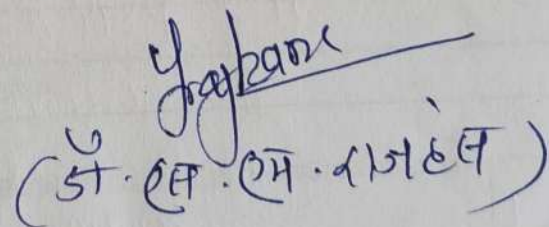 (डॉ. एस. एम. राजहंस)